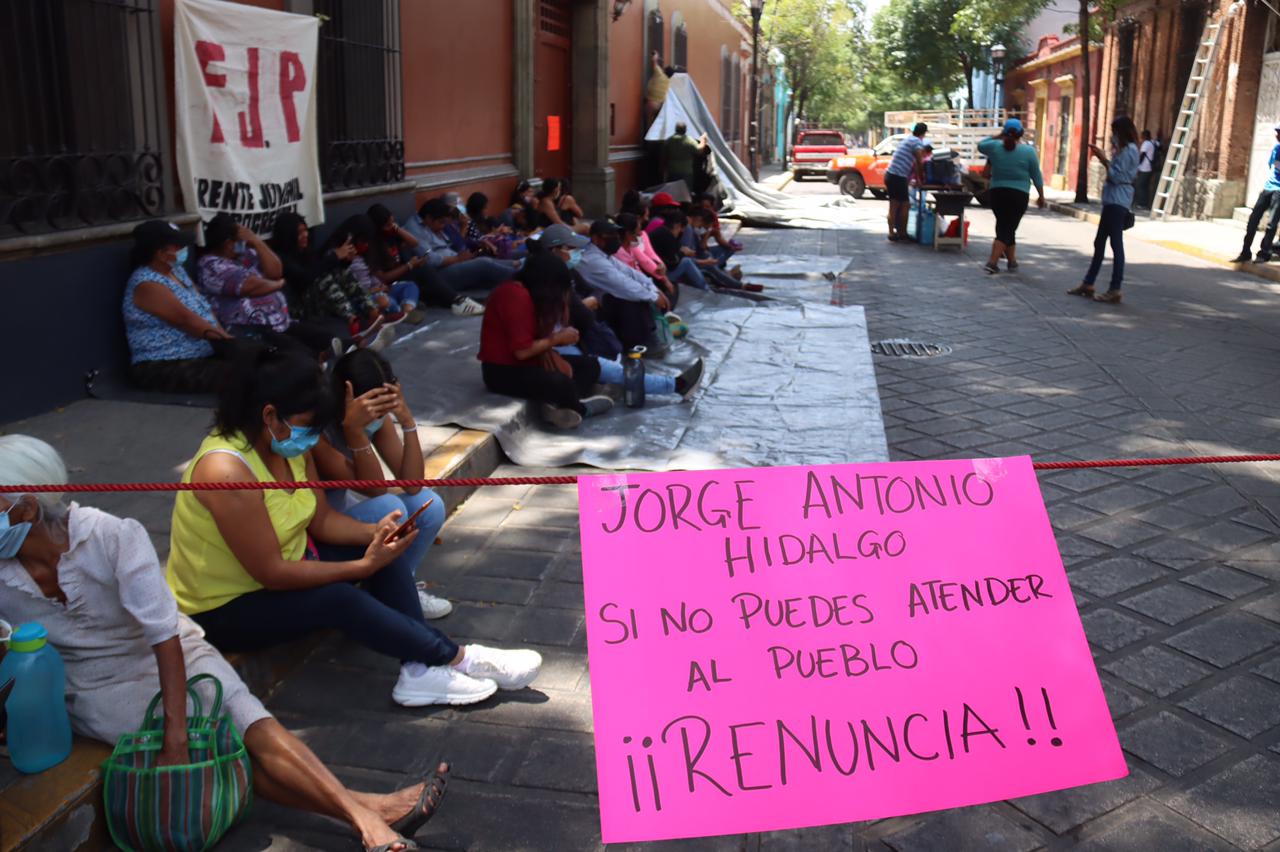 F.J.P
FRENTE JUVENIL
PROGRESISTA
JORGE ANTONIO
HIDALGO
SI NO PUEDES ATENDER
AL PUEBLO
¡¡RENUNCIA!!